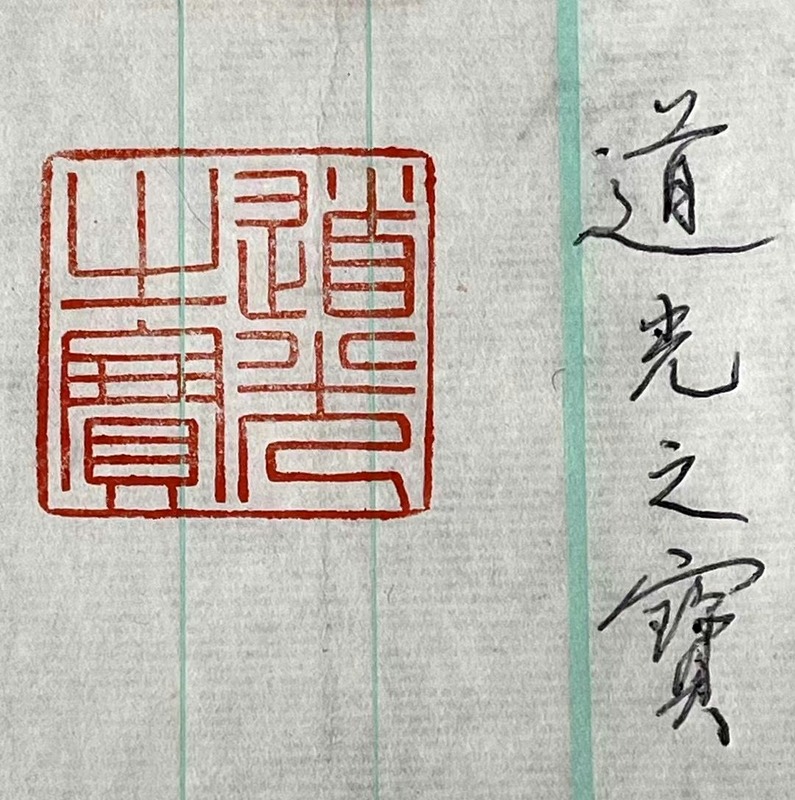 道光之寶
道光
之寶